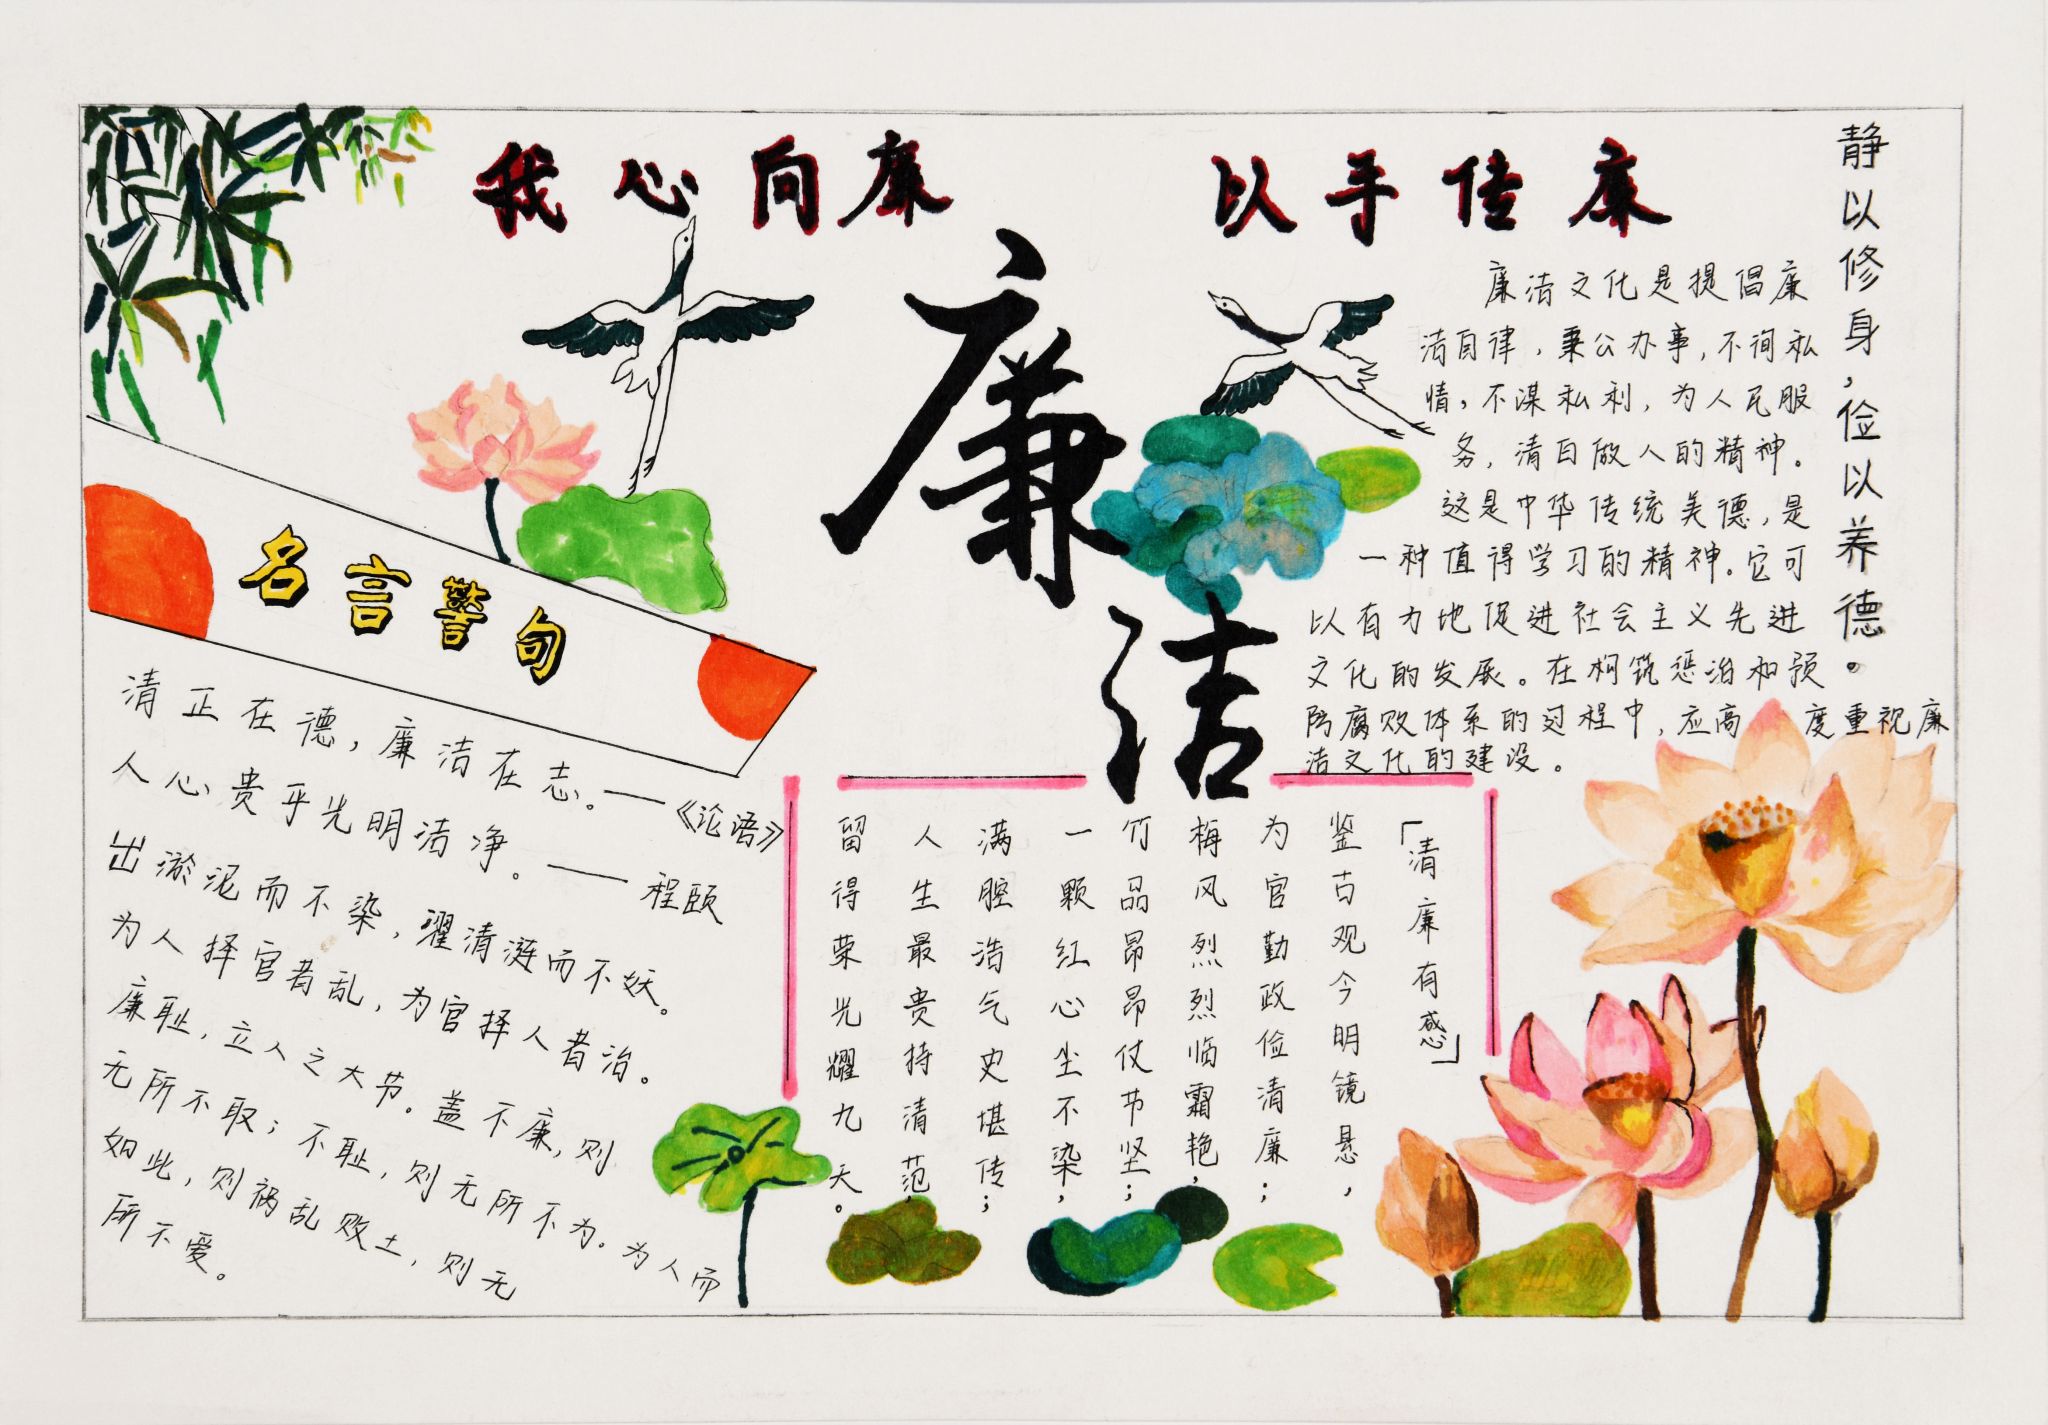 我心向廉 以手传廉
廉洁
静以修身，俭以养德。
廉洁文化是提倡廉
洁自律，秉公办事，不徇私
情，不谋私利，为人民服
务，清白做人的精神。
这是中华传统美德，是
一种值得学习的精神。它可
以有力地促进社会主义先进
文化的发展。在构筑惩治和预
防腐败体系的过程中，应高度重视廉
洁文化的建设。
名言警句
清正在德，廉洁在志。——《论语》
人心贵乎光明洁净。——程颐
出淤泥而不染，濯清涟而不妖。
为人择官者乱，为官择人者治。
廉耻，立人之大节。盖不廉，则
无所不取；不耻，则无所不为。为人而
如此，则祸乱败土，则无
所不爱。
「清廉有感」
鉴古观今明镜悬，
为官勤政俭清廉；
梅风烈烈临霜艳，
竹品昂昂仗节坚；
一颗红心尘不染，
满腔浩气史堪传；
人生最贵持清范，
留得荣光耀九天。